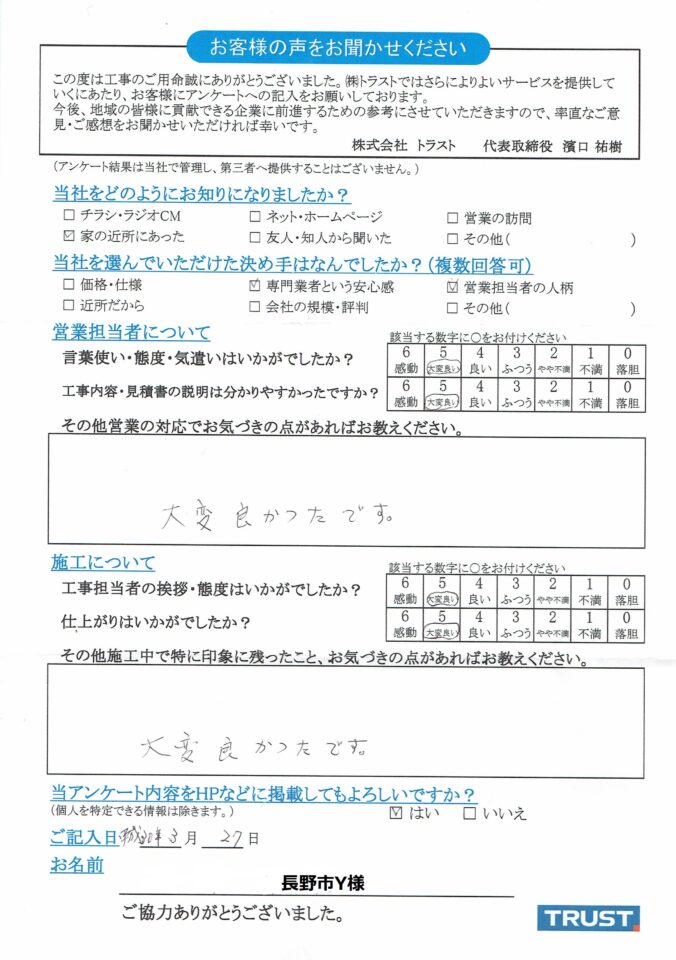 お客様の声をお聞かせください
この度は工事のご用命誠にありがとうございました。㈱トラストではさらによりよいサービスを提供して
いくにあたり、お客様にアンケートへの記入をお願いしております。
今後、地域の皆様に貢献できる企業に前進するための参考にさせていただきますので、率直なご意
見・ご感想をお聞かせいただければ幸いです。
株式会社 トラスト 代表取締役 濱口 祐樹
(アンケート結果は当社で管理し、第三者へ提供することはございません。)
当社をどのようにお知りになりましたか?
□ チラシ・ラジオCM □ ネット・ホームページ □ 営業の訪問
☑ 家の近所にあった □ 友人・知人から聞いた □ その他( )
当社を選んでいただけた決め手はなんでしたか?(複数回答可)
□ 価格・仕様 ☑ 専門業者という安心感 ☑ 営業担当者の人柄
□ 近所だから □ 会社の規模・評判 □ その他( )
営業担当者について 該当する数字に○をお付けください
言葉使い・態度・気遣いはいかがでしたか? 6 5 4 3 2 1 0
感動 大変良い 良い ふつう やや不満 不満 落胆
工事内容・見積書の説明は分かりやすかったですか? 6 5 4 3 2 1 0
感動 大変良い 良い ふつう やや不満 不満 落胆
その他営業の対応でお気づきの点があればお教えください。
大変良かったです。
施工について 該当する数字に○をお付けください
工事担当者の挨拶・態度はいかがでしたか? 6 5 4 3 2 1 0
感動 大変良い 良い ふつう やや不満 不満 落胆
仕上がりはいかがでしたか? 6 5 4 3 2 1 0
感動 大変良い 良い ふつう やや不満 不満 落胆
その他施工中で特に印象に残ったこと、お気づきの点があればお教えください。
大変良かったです。
当アンケート内容をHPなどに掲載してもよろしいですか?
(個人を特定できる情報は除きます。) ☑ はい □ いいえ
ご記入日 平成30年 3 月 27 日
お名前
長野市Y様
ご協力ありがとうございました。
TRUST